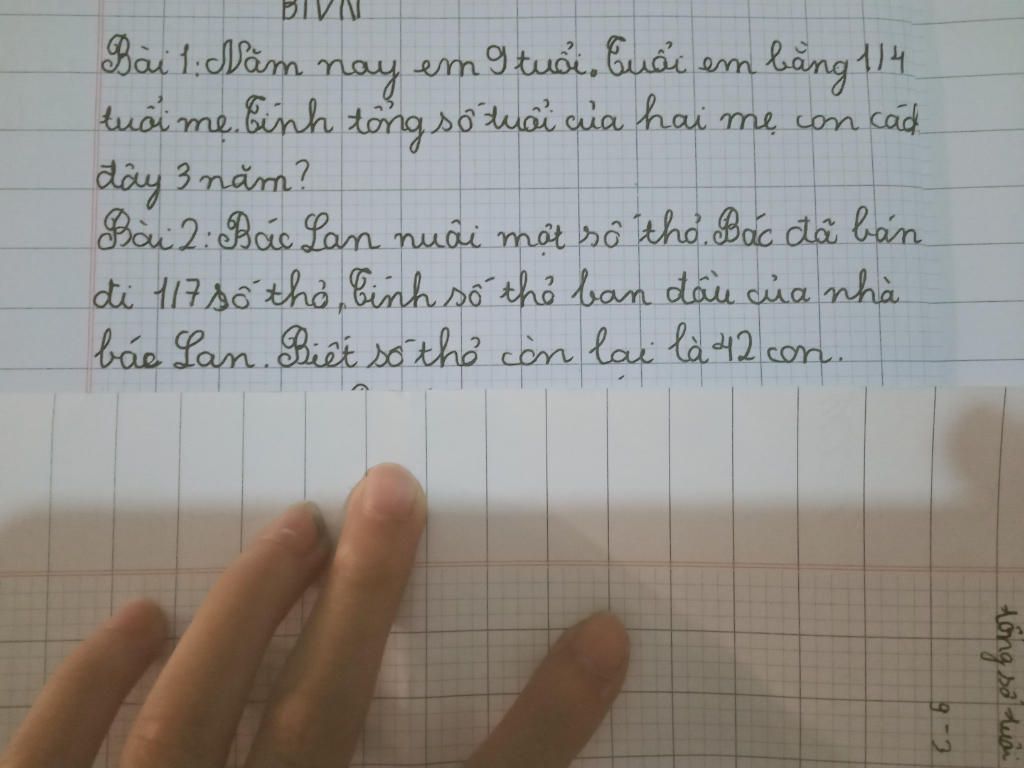 BTVN
Bài 1: Năm nay em 9 tuổi. Tuổi em bằng 1/4
tuổi mẹ. Tính tổng số tuổi của hai mẹ con cách
đây 3 năm?
Bài 2: Bác Lan nuôi một số thỏ. Bác đã bán
đi 1/7 số thỏ, Tính số thỏ ban đầu của nhà
bác Lan. Biết số thỏ còn lại là 42 con.
tổng số tuổi
9 - 3